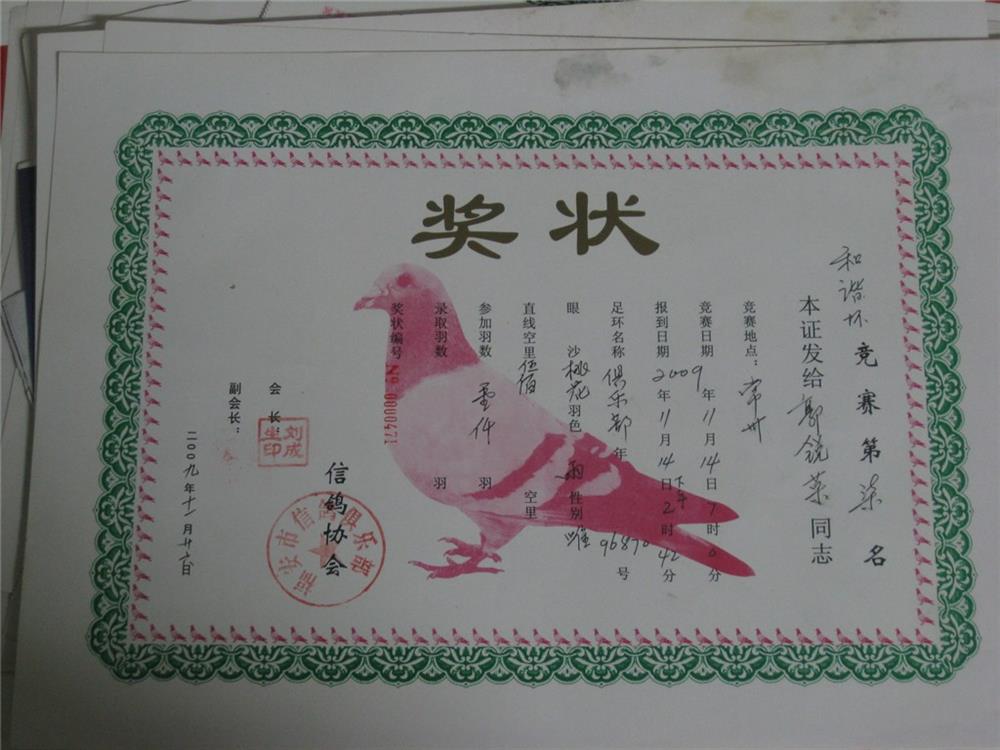 奖状
和谐杯竞赛第柒名
本证发给郭锐英同志
竞赛地点：常州
竞赛日期2009年11月14日7时0分
报到日期 年11月14日下午2时42分
足环名称俱乐部年96870号
眼沙桃花羽色雨性别雌
直线空里伍佰空里
参加羽数 仟羽
录取羽数 羽
奖状编号No 0000471
信鸽协会
福安市信鸽俱乐部
会长：
刘成生印
副会长：
二00九年十一月廿六日